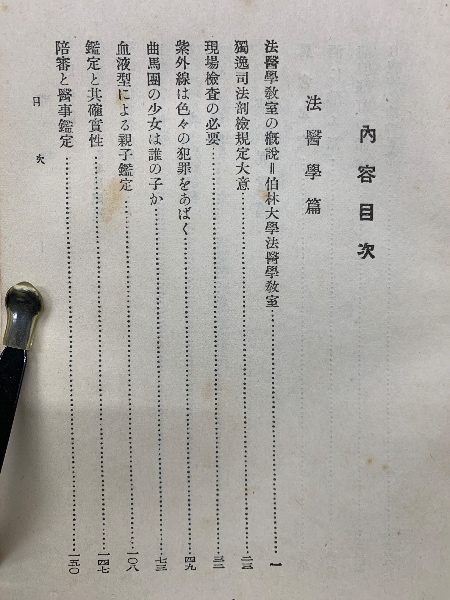 內容目次
法醫學篇
法醫學教室の槪說＝伯林大學法醫學教室……一
獨逸司法剖檢規定大意……二三
現場檢查の必要……三二
紫外線は色々の犯罪をあばく……四九
曲馬團の少女は誰の子か……七三
血液型による親子鑑定……一〇八
鑑定と其確實性……一四七
陪審と醫事鑑定……一五〇
目次